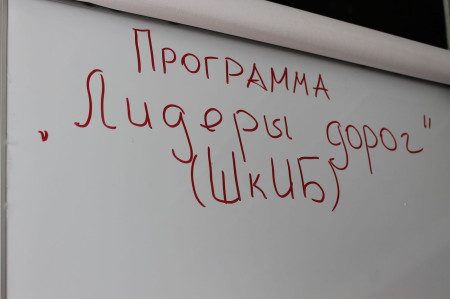 Программа
„Лидеры дорог"
(ШКИБ)